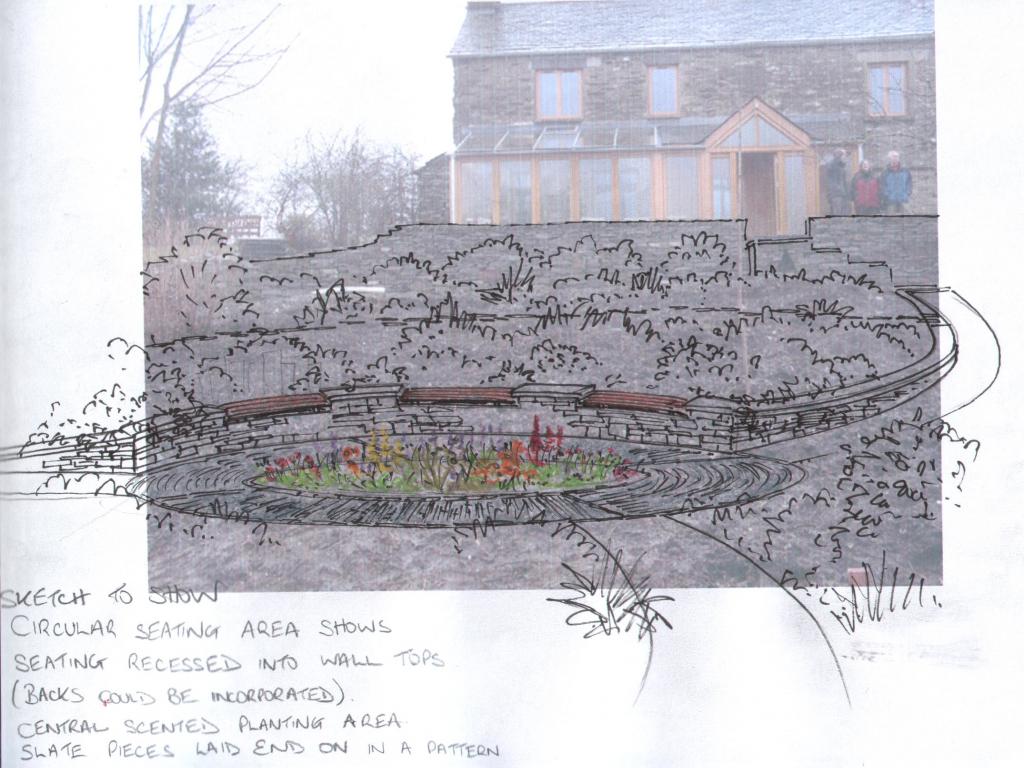 SKETCH TO SHOW
CIRCULAR SEATING AREA SHOWS
SEATING RECESSED INTO WALL TOPS
(BACKS COULD BE INCORPORATED).
CENTRAL SCENTED PLANTING AREA.
SLATE PIECES LAID END ON IN A PATTERN